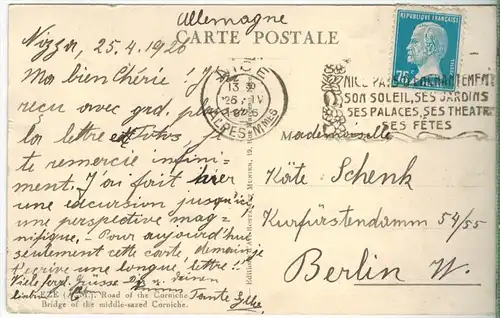 Allemagne
CARTE POSTALE
Nizza, 25.4.1926
Ma bien Chérie! J'ai
reçu avec grd. plaisir
la lettre et
te remercie infini-
ment. J'ai fait hier
une excursion jusqu'ici
une perspective mag-
nifique. - Pour aujourd'hui
seulement cette carte, demain je
t'écrire une longue lettre!
Viele hrzl. Grüsse
Tante
EZE (A.-M.) Road of the Corniche
Bridge of the middle-sazed Corniche.
RÉPUBLIQUE FRANÇAISE
75c
NICE
13
26 IV
1926
ALPES-MMES
NICE PARADIS ENCHANTEMENT
SON SOLEIL, SES JARDINS
SES PALACES, SES THEATRES
SES FÊTES
Mademoiselle
Käte Schenk
Kurfürstendamm 54/55
Berlin W.